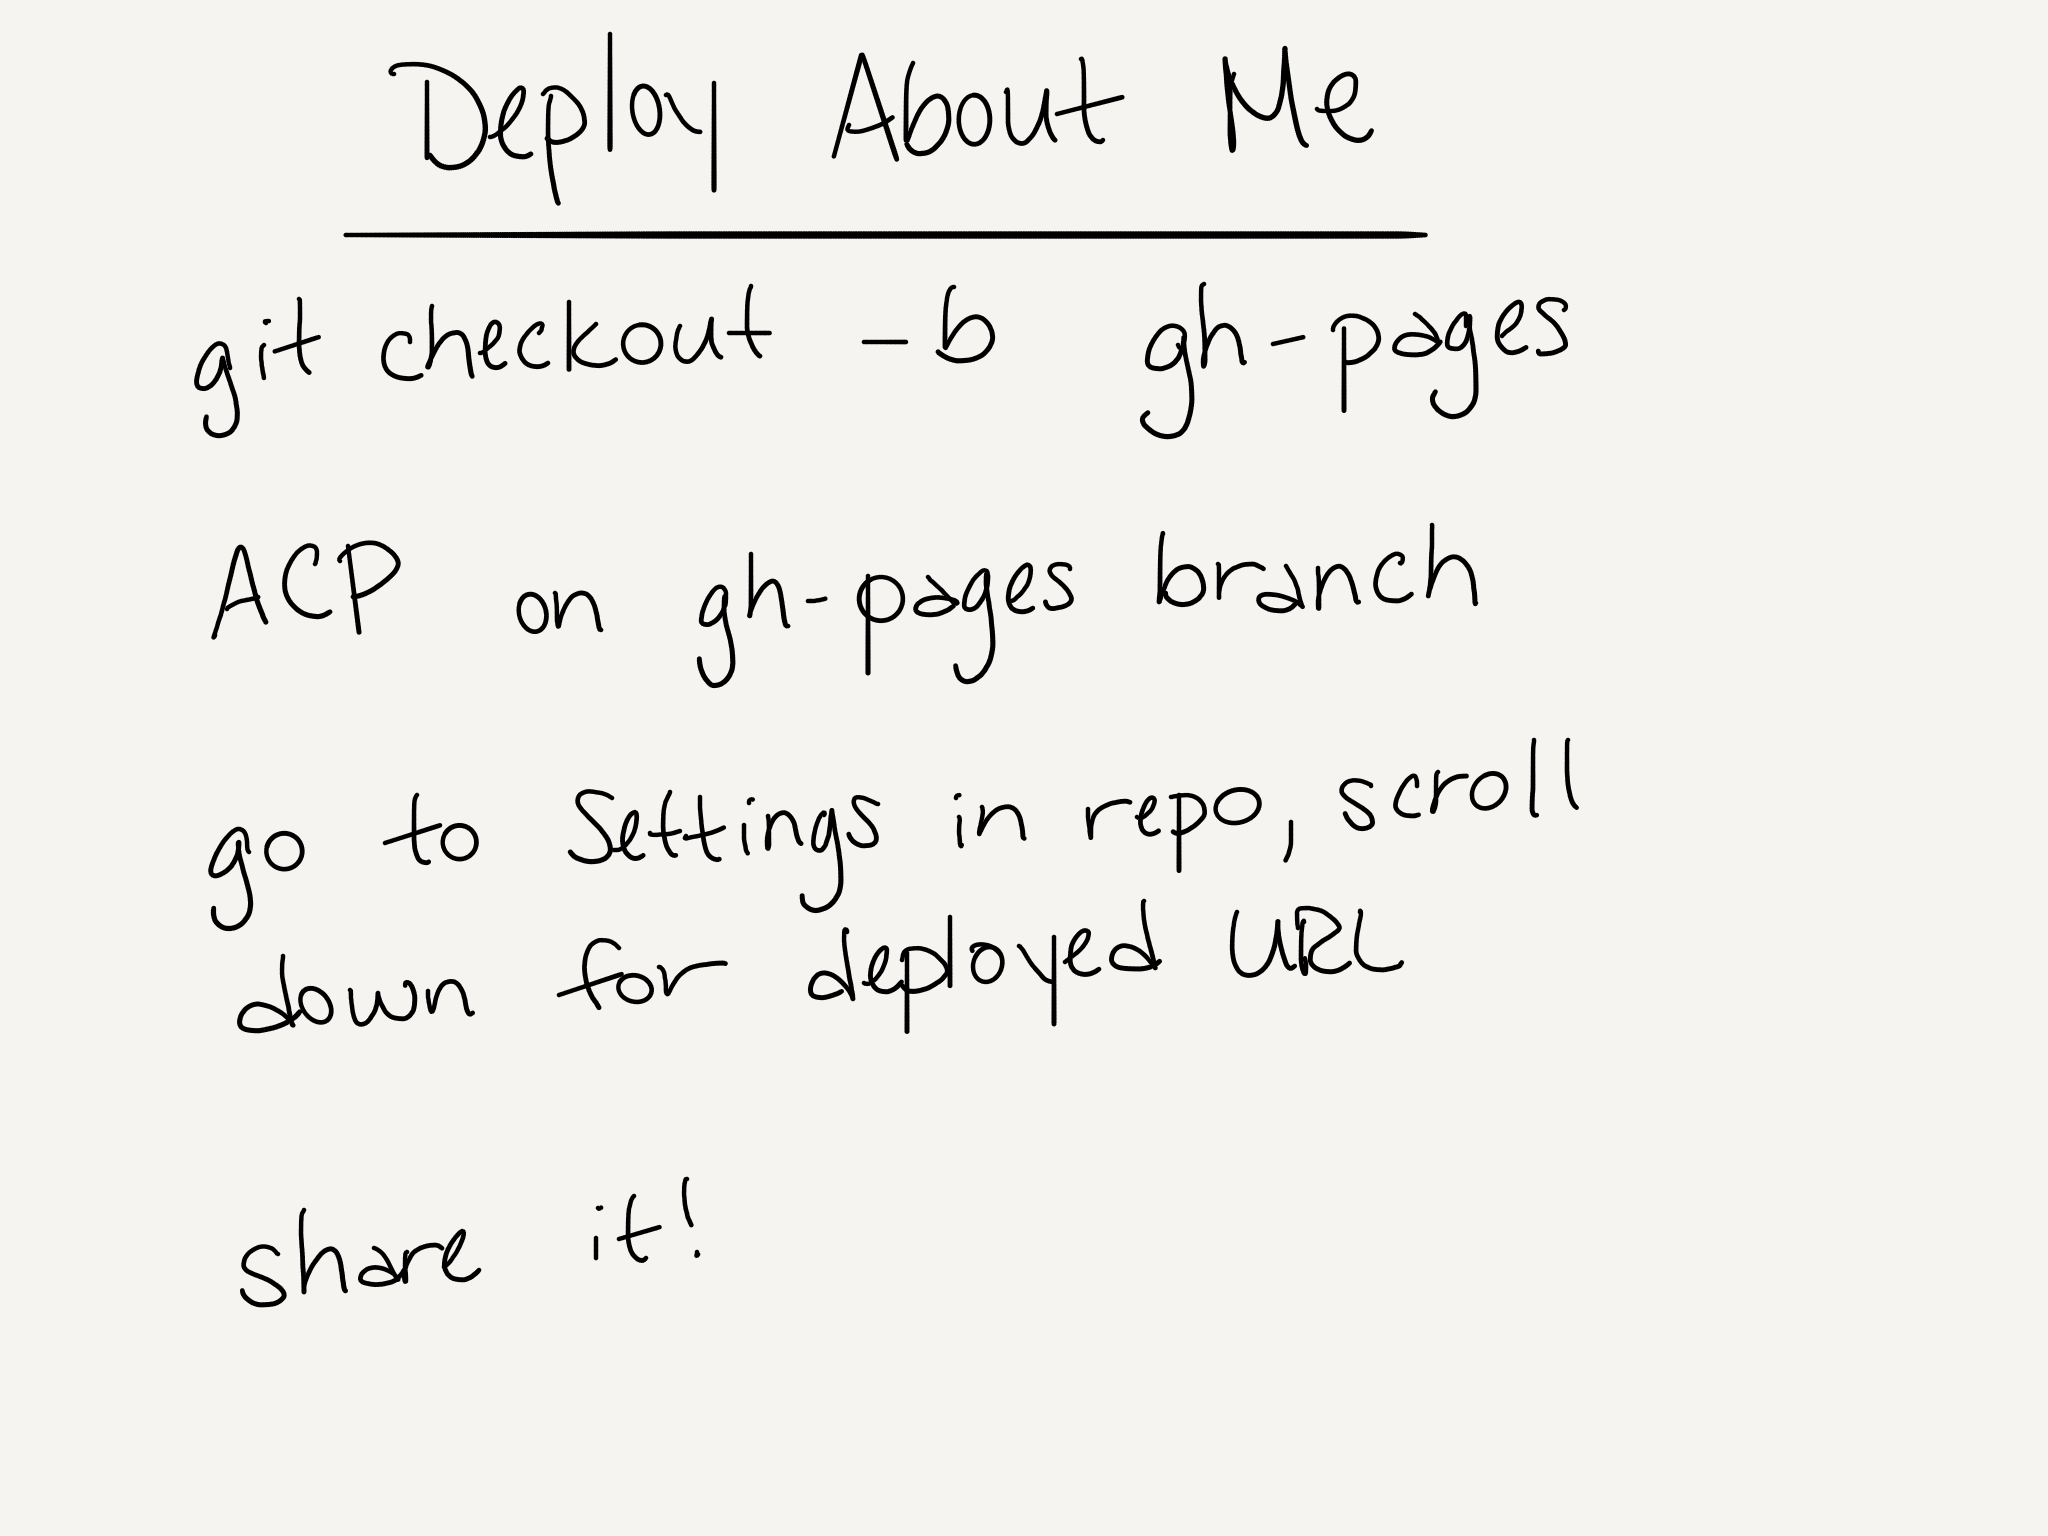 Deploy About Me
git checkout -b gh-pages
ACP on gh-pages branch
go to Settings in repo, scroll
down for deployed URL
share it!